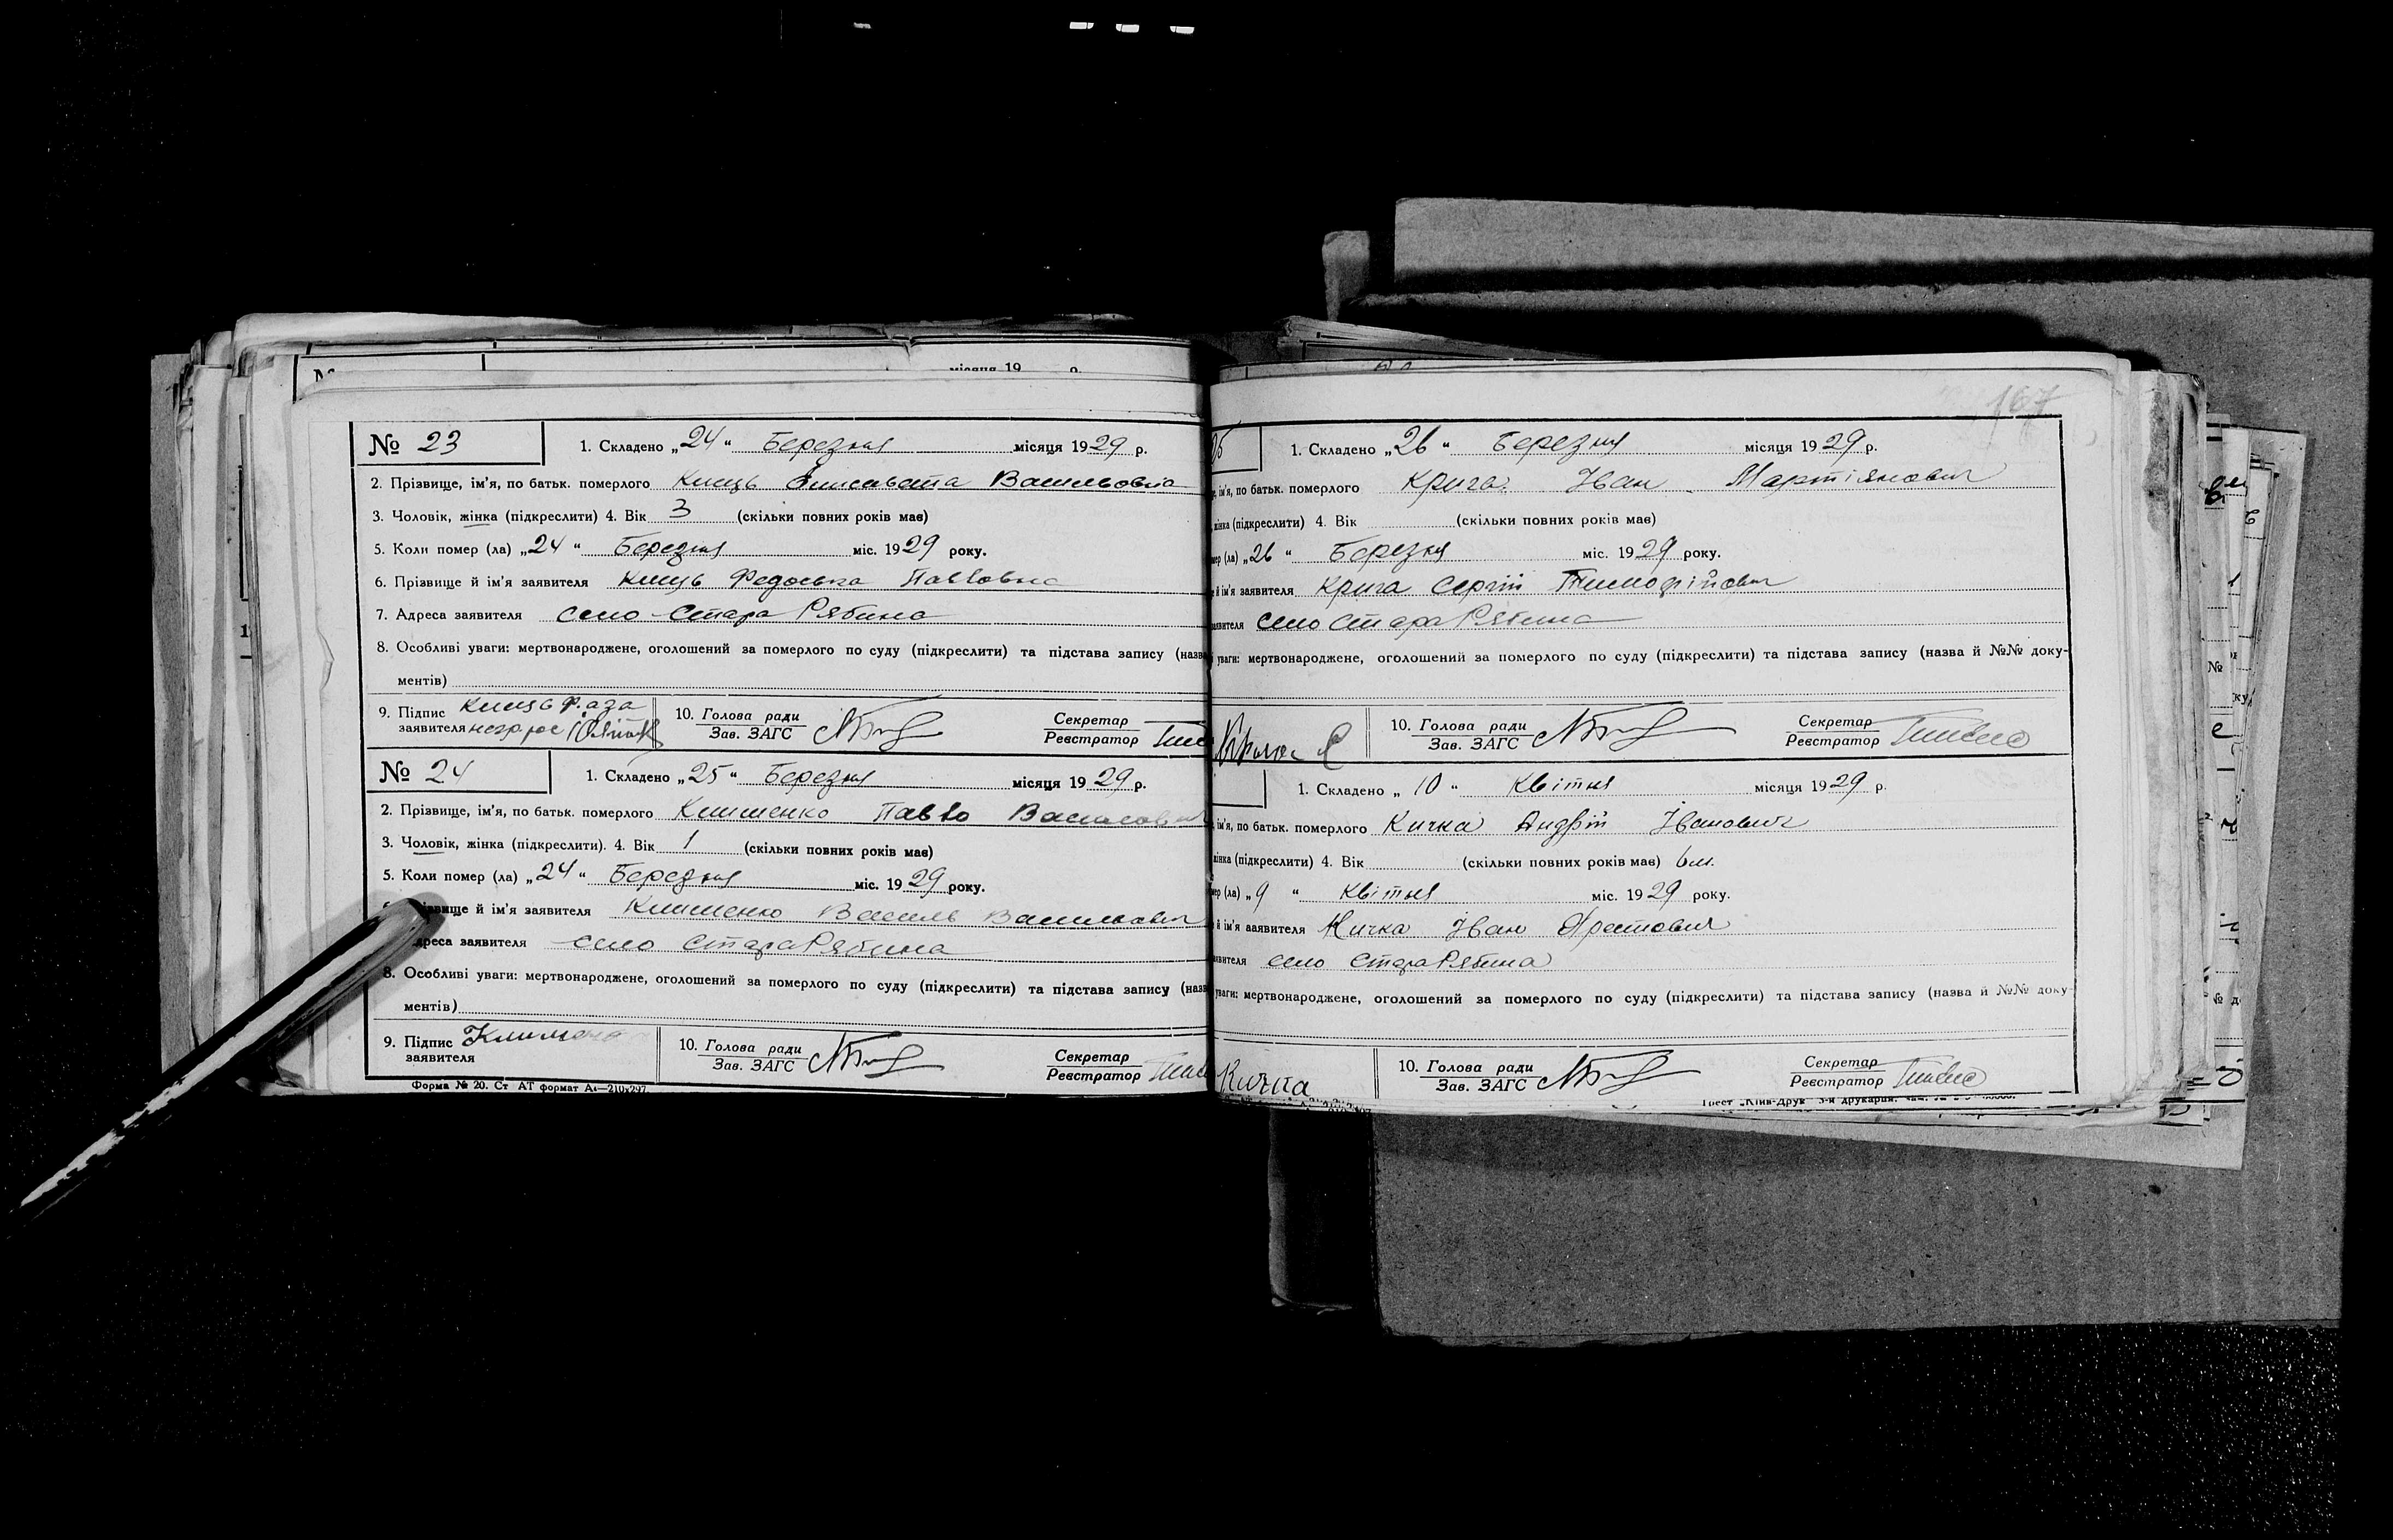 місяця 19 р.
№ 23
1. Складено „24“ Березня місяця 1929 р.
2. Прізвище, ім'я, по батьк. померлого Книць Єлисавета Васильовна
3. Чоловік, жінка (підкреслити) 4. Вік 3 (скільки повних років має)
5. Коли помер (ла) „24“ Березня міс. 1929 року.
6. Прізвище й ім'я заявителя Книць Федоська Павловна
7. Адреса заявителя село Стара Рябина
8. Особливі уваги: мертвонароджене, оголошений за померлого по суду (підкреслити) та підстава запису (назв
ментів)
9. Підпис заявителя
10. Голова ради
Зав. ЗАГС
Секретар
Реєстратор
№ 24
1. Складено „25“ Березня місяця 1929 р.
2. Прізвище, ім'я, по батьк. померлого Клименко Павло Васильович
3. Чоловік, жінка (підкреслити). 4. Вік 1 (скільки повних років має)
5. Коли помер (ла) „24“ Березня міс. 1929 року.
й ім'я заявителя Клименко Василь Васильович
заявителя село Стара Рябина
8. Особливі уваги: мертвонароджене, оголошений за померлого по суду (підкреслити) та підстава запису (назв
ментів)
9. Підпис Клименко
заявителя
10. Голова ради
Зав. ЗАГС
Секретар
Реєстратор
Форма № 20. Ст АТ формат А₄—210х297
167
1. Складено „26“ Березня місяця 1929 р.
ім'я, по батьк. померлого Крига Іван Мартіянович
жінка (підкреслити) 4. Вік (скільки повних років має)
(ла) „26“ Березня міс. 1929 року.
й ім'я заявителя Крига Сергій Тимофійович
село Стара Рябина
уваги: мертвонароджене, оголошений за померлого по суду (підкреслити) та підстава запису (назва й №№ доку-
10. Голова ради
Зав. ЗАГС
Секретар
Реєстратор
1. Складено „10“ Квітня місяця 1929 р.
ім'я, по батьк. померлого Кичка Андрій Іванович
жінка (підкреслити) 4. Вік (скільки повних років має) 6м.
(ла) „9“ Квітня міс. 1929 року.
й ім'я заявителя Кичка Іван
село Стара Рябина
уваги: мертвонароджене, оголошений за померлого по суду (підкреслити) та підстава запису (назва й №№ доку-
Кичка
10. Голова ради
Зав. ЗАГС
Секретар
Реєстратор